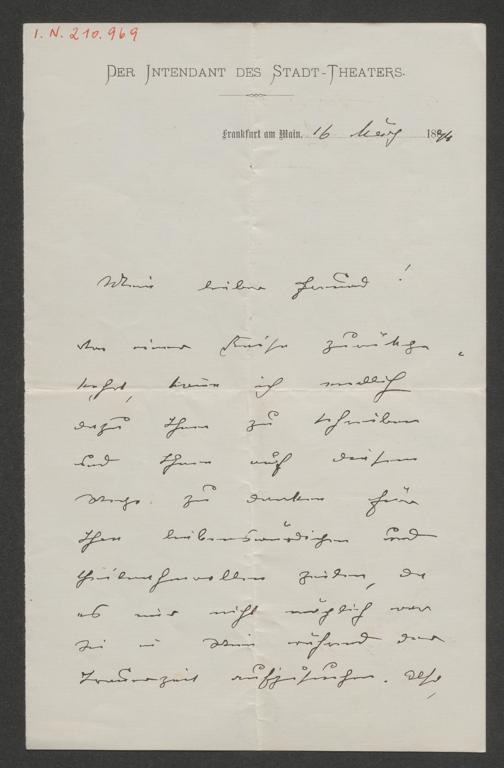 I. N. 210.969
DER INTENDANT DES STADT-THEATERS.
Frankfurt am Main, 16 März 188
Mein lieber Freund!
Von einer Reise zurückge-
kehrt, komme ich endlich
dazu Ihnen zu schreiben
und Ihnen auf diesem
Wege zu danken für
Ihre liebenswürdigen und
theilnehmvollen Zeilen, da
es mir nicht möglich war
Sie in Wien während der
Trauerzeit aufzusuchen.